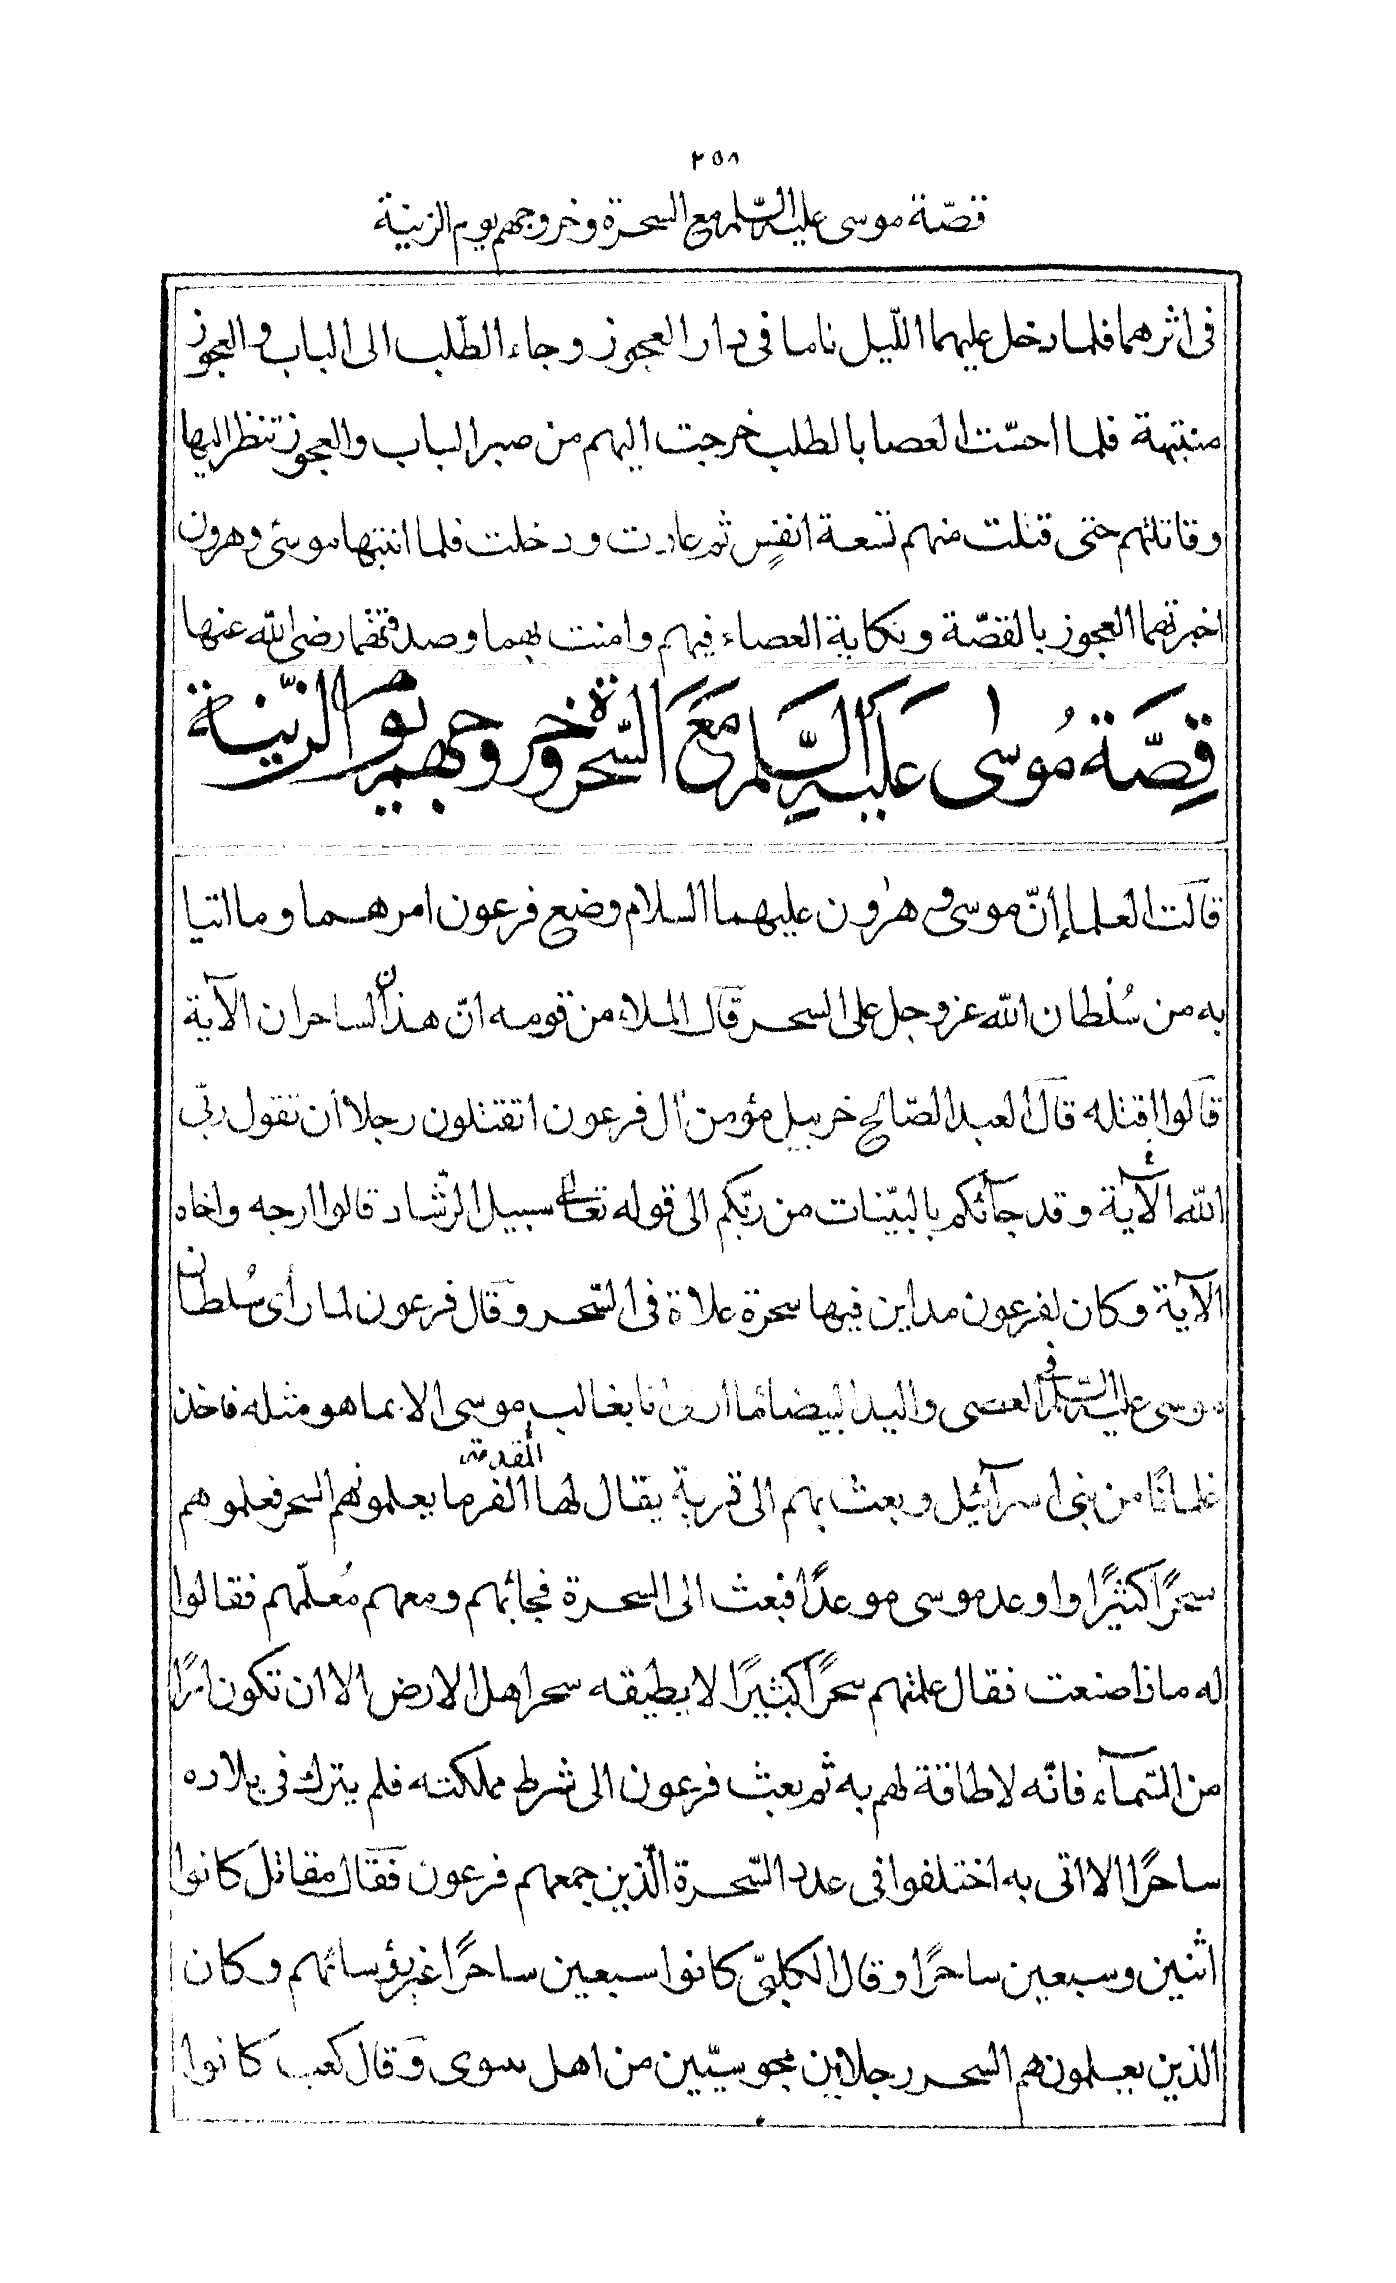 ٢٥٨
قصّة موسى عليه السّلم مع السحرة وخروجهم يوم الزينة
فى اثرهما فلما دخل عليهما اللّيل ناما فى دار العجوز وجاء الطّلب الى الباب والعجوز
منتبهة فلما احسّت العصا بالطلب خرجت اليهم من صبر الباب والعجوز تنظر اليها
وقاتلتهم حتى قتلت منهم تسعة انفسٍ ثم عادت ودخلت فلما انتبها موسى وهرون
اخبرتهما العجوز بالقصّة ونكاية العصاء فيهم وامنت بهما وصدقتهما رضى اللّه عنها
قِصّة مُوسٰى عَليهِ السَّلم مَعَ السّحرة وخروجهم يوم الزّينة
قالت العلما إنّ موسى وهٰرون عليهما السلام وضع فرعون امرهما وما اتيا
به من سُلْطان اللّه عز وجل على السحر قال الملاء من قومه انّ هذان الساحران الآية
قالوا اقتله قال العبد الصّالح خربيل مؤمن آل فرعون اتقتلون رجلا أن تقول ربّى
اللّه الآية وقد جآئكم بالبيّنات من ربّكم الى قوله تعالى سبيل الرّشاد قالوا ارجه واخاه
الآية وكان لفرعون مداين فيها سحرة علاة فى السّحر وقال فرعون لما رأى سُلطان
موسى عليه السّلم فى العصى واليد البيضا انا بغالب موسى الا بما هو مثله فاخذ
غلمانًا من بنى اسرآئيل وبعث بهم الى قرية يقال لها الفرما المقدمة يعلمونهم السحر فعلموهم
سحرًا كثيرًا واوعد موسى موعدًا فبعث الى السحرة فجائهم ومعهم مُعلّمهم فقالوا
له ماذا صنعت فقال علمتهم سحرًا كثيرًا لا يطيقه سحر اهل الارض الا ان تكون امرًا
من السّمآء فانّه لا طاقة لهم به ثم بعث فرعون الى شرط مملكته فلم يترك فى بلاده
ساحرًا الا اتى به اختلفوا فى عدد السّحرة الّذين جمعهم فرعون فقال مقاتل كانوا
اثنين وسبعين ساحرًا وقال الكلبىّ كانوا سبعين ساحرًا غير رؤسائهم وكان
الذين يعلمونهم السحر رجلاين مجوسيّين من اهل سوى وقال كعب كانوا